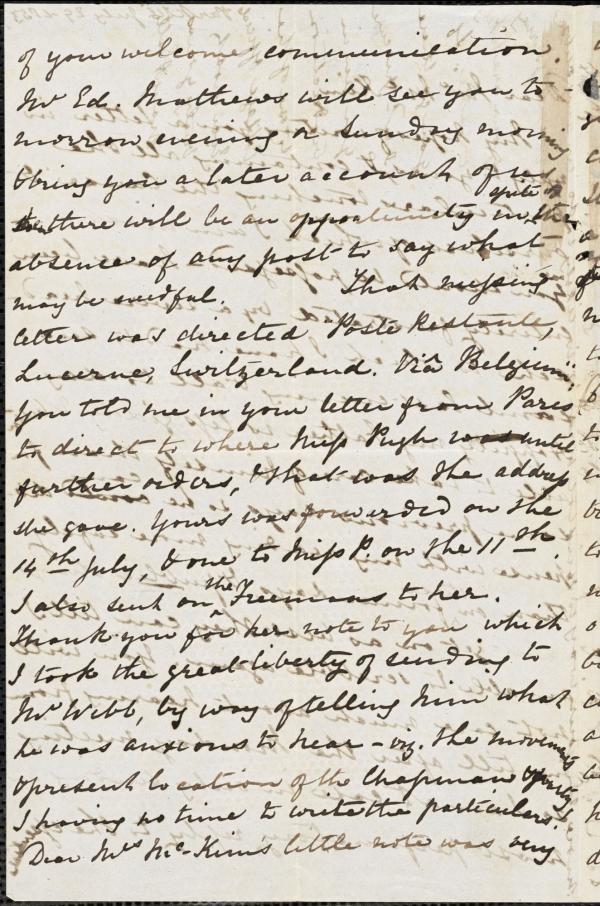 of your welcome communication.
Mr Ed. Mathews will see you to-
morrow evening or Sunday morning
& bring you a later account of us
so there will be an opportunity in spite of the
absence of any post to say what
may be needful. That missing
letter was directed Poste Restante,
Lucerne, Switzerland. Viâ Belgium,
you told me in your letter from Paris
to direct to where Miss Pugh was until
further orders, & that was the address
she gave. Yours was forwarded on the
14th July, & one to Miss P. on the 11th.
I also sent on the Freemans to her.
Thank you for her note to you which
I took the great liberty of sending to
Mr Webb, by way of telling him what
he was anxious to hear – viz. the movements
& present location of the Chapman party,
I having no time to write the particulars.
Dear Mrs Mc-Kim's little note was very